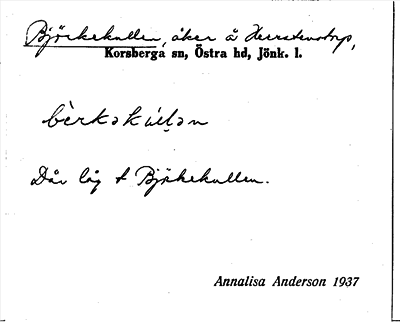 Björkekullen, åker å Herrstenstorp,
Korsberga sn, Östra hd, Jönk. l.
bèrkəkúlən
Där låg t Björkekullen.
Annalisa Anderson 1937